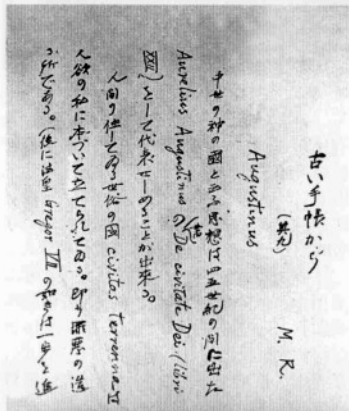 古い手帳から
(其九) M. R.
Augustinus
中世の神の國と云ふ思想は四五世紀の間に出た
Aurelius Augustinus の(著) De civitate Dei (libri
XXII) をして代表せしめることが出來る。
人間の住してゐる世俗の國 civitas terrena は
人欲の私に本づいて立てられてゐる。即ち罪惡の造
る所である。(後に法皇 Gregor VII の如きは一歩を進